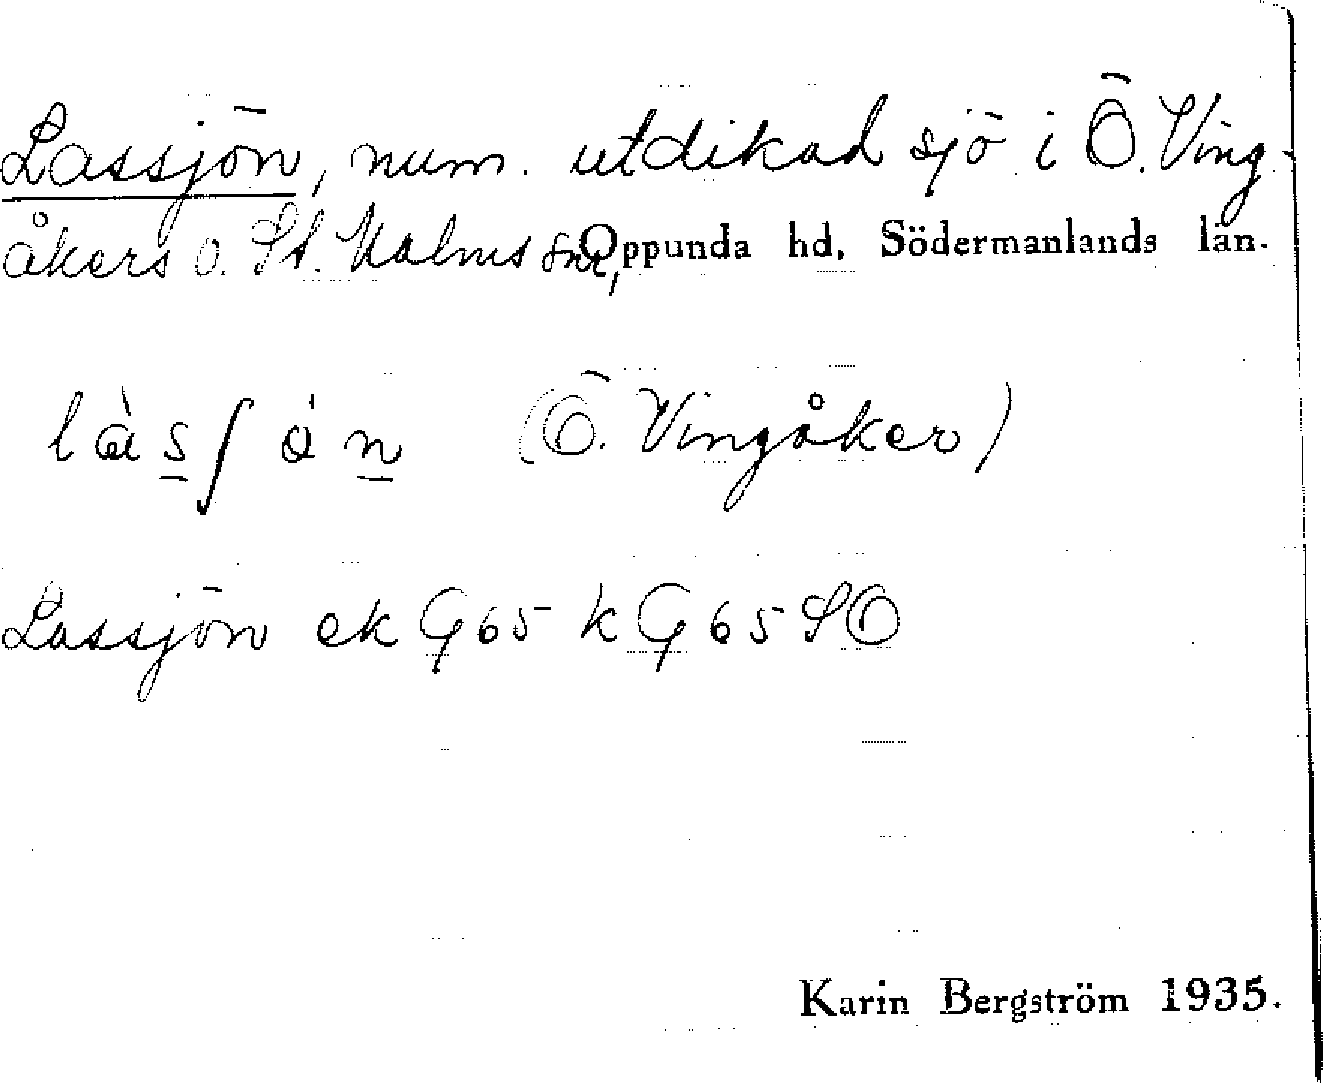 Lassjön, num. utdikad sjö i Ö. Ving-
åkers o. St. Malms snr, Oppunda hd, Södermanlands län.
(Ö. Vingåker)
Lassjön ek G 65 k G 65 SO
Karin Bergström 1935.